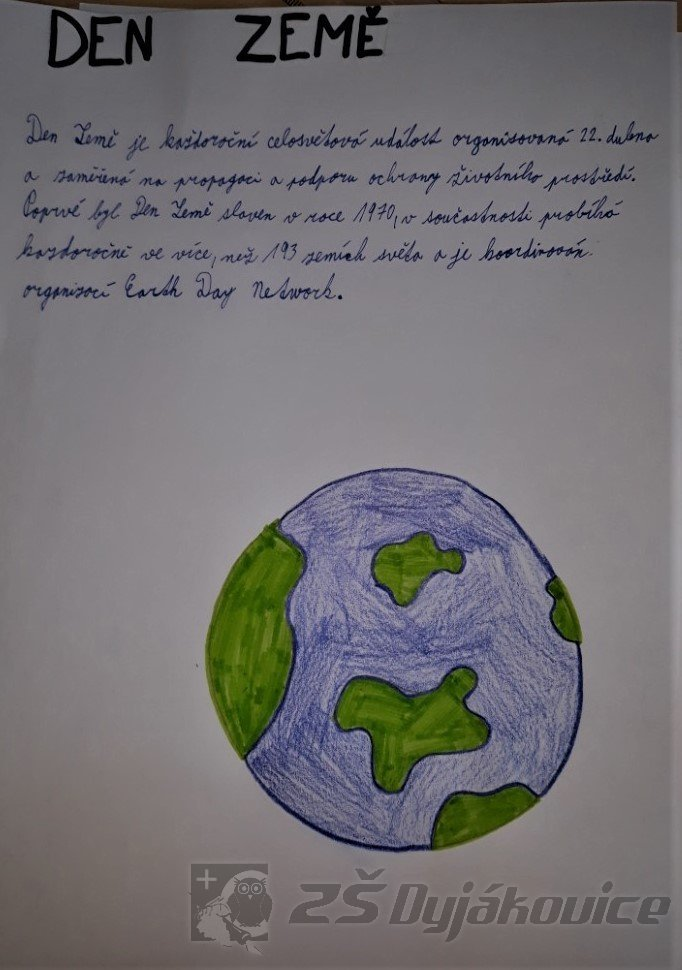 DEN ZEMĚ
Den Země je každoroční celosvětová událost organisovaná 22. dubna
a zaměřená na propagaci a podporu ochrany životního prostředí.
Poprvé byl Den Země slaven v roce 1970, v součastnosti probíhá
každoročně ve více, než 193 zemích světa a je koordinován
organizací Earth Day Network.
ZŠ Dyjákovice